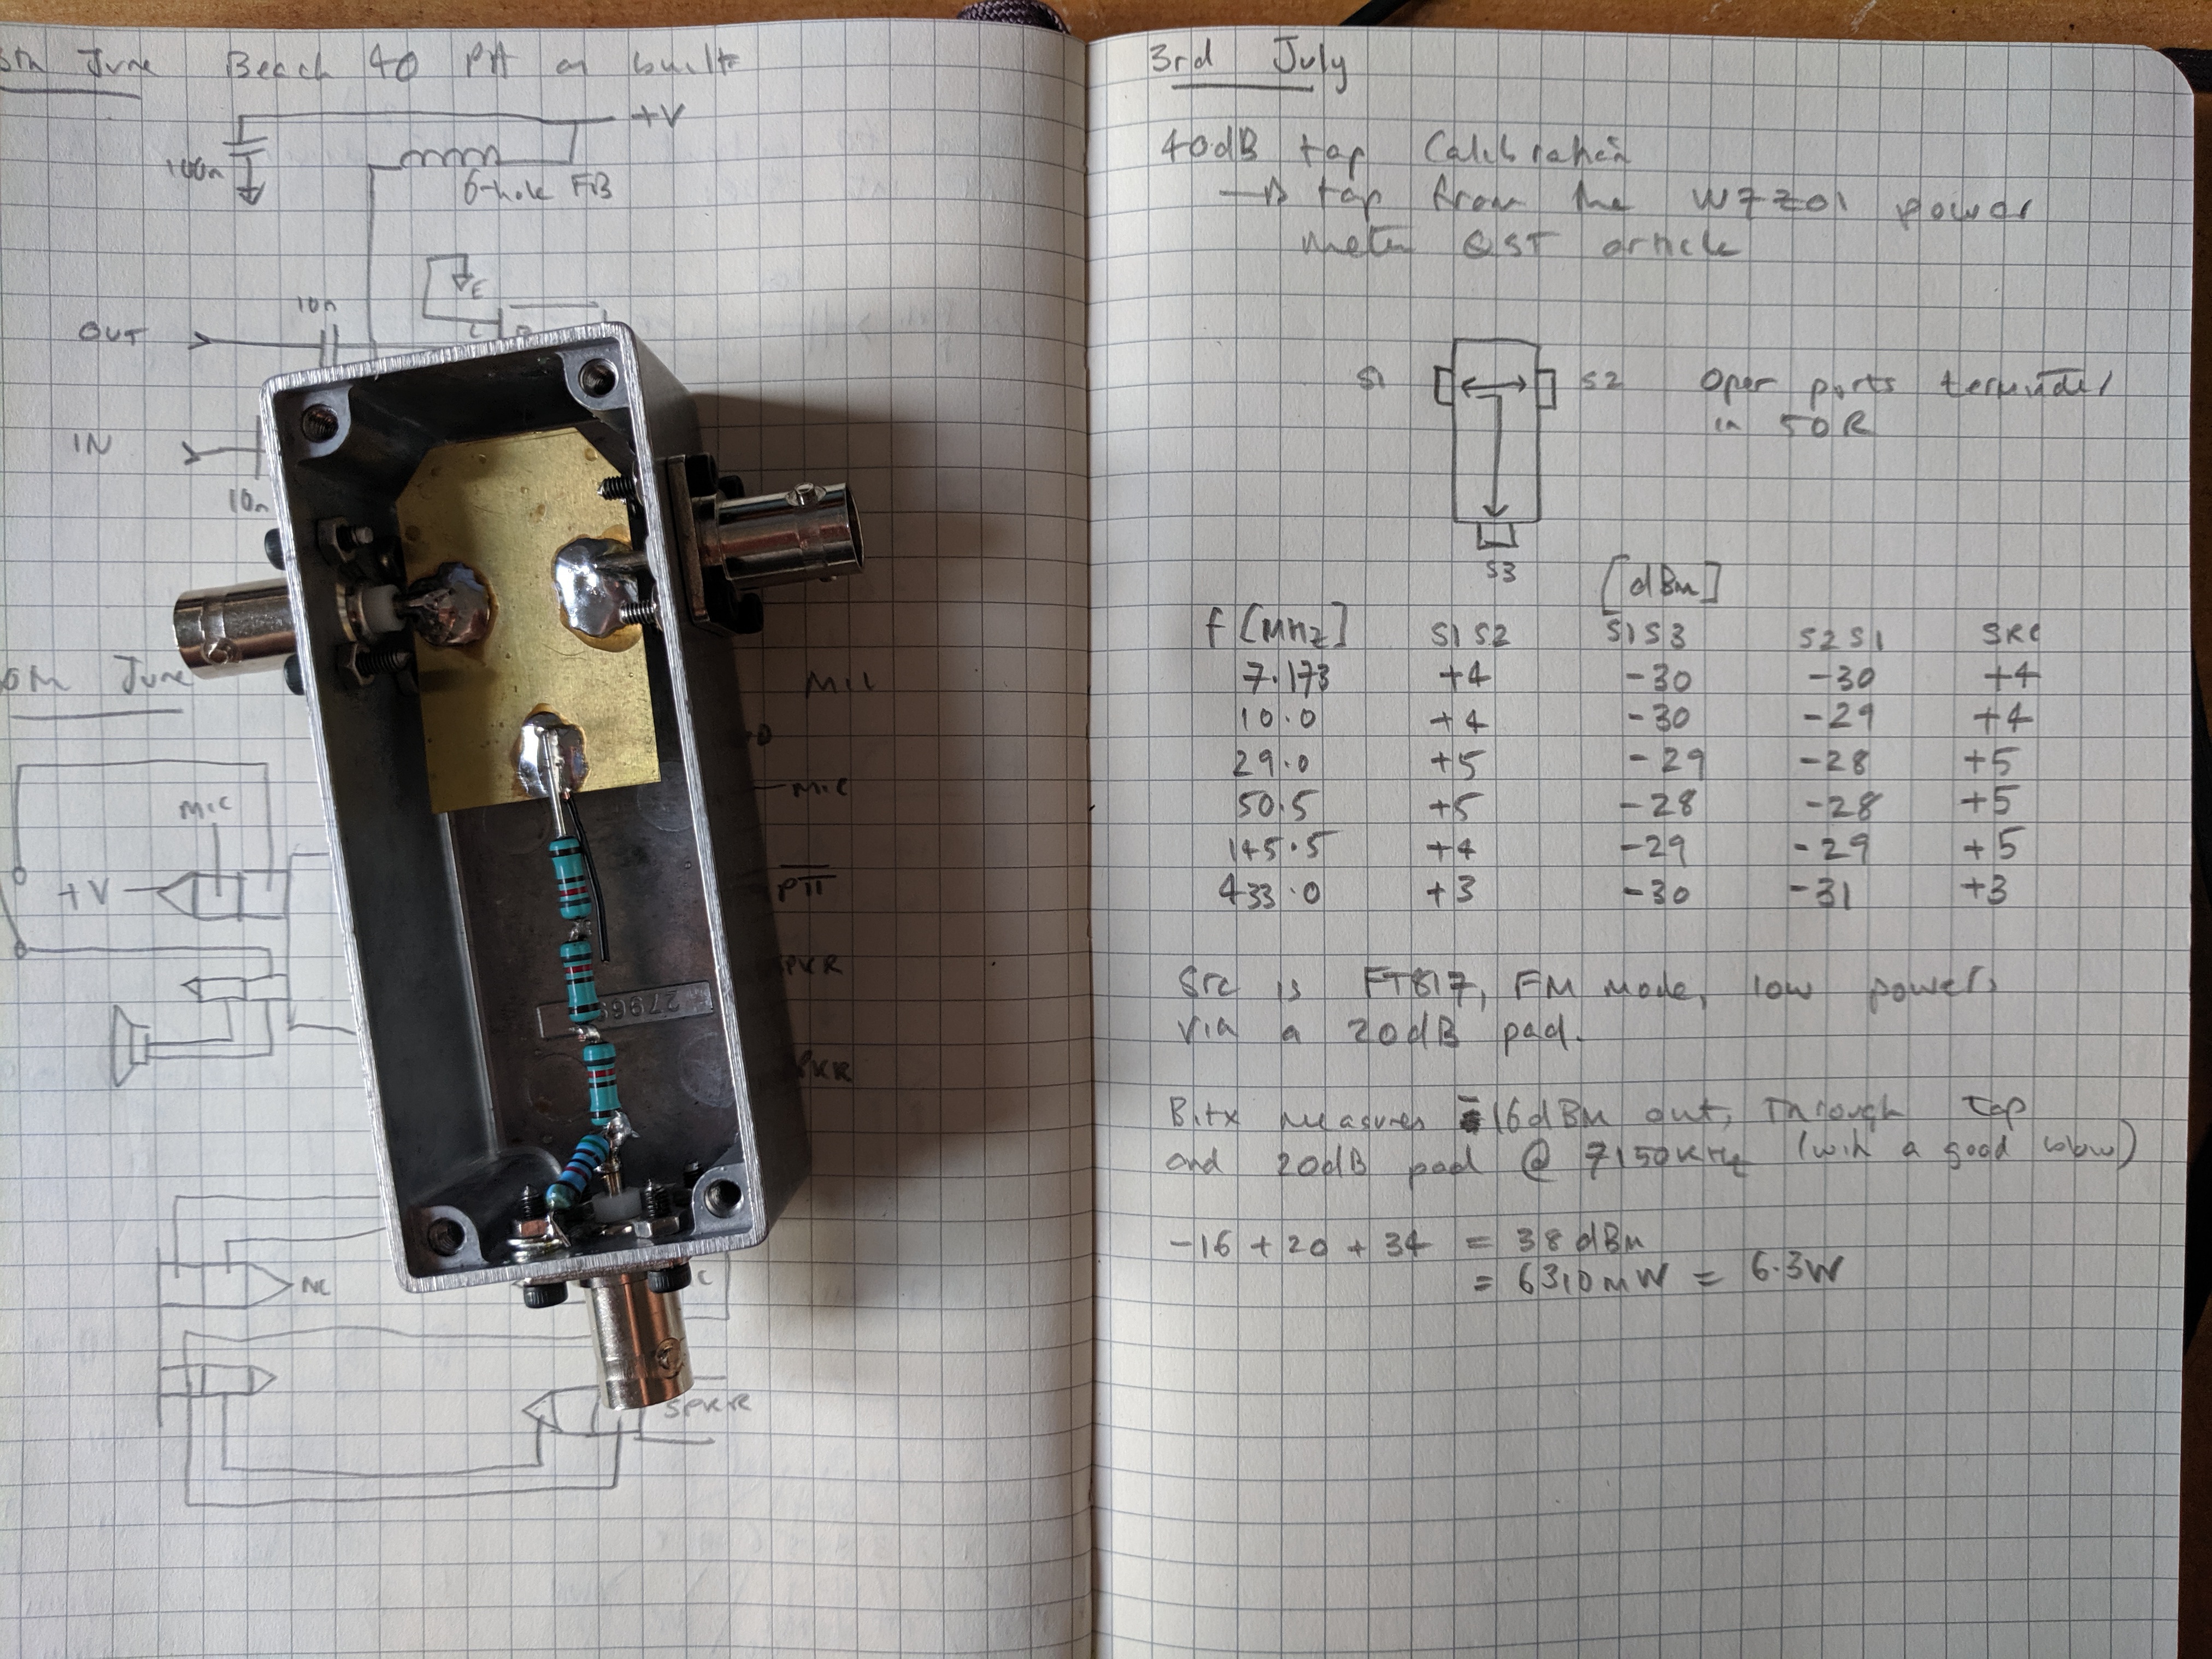 June Beach 40 PA as built
+V
100n
6-hole FB
E
10n
OUT
IN
10n
June
MIC
MIC
MIC
+V
PTT
SPKR
SPKR
NC
C
SPKR
2796
3rd July
40dB tap Calibration
→ tap from the W7ZOI power
meter QST article
S1 S2 Open ports terminated
in 50R
S3
[dBm]
f [MHz] S1 S2 S1 S3 S2 S1 SRC
7.173 +4 -30 -30 +4
10.0 +4 -30 -29 +4
29.0 +5 -29 -28 +5
50.5 +5 -28 -28 +5
145.5 +4 -29 -29 +5
433.0 +3 -30 -31 +3
Src is FT817, FM mode, low power,
via a 20dB pad.
Bitx measures -16dBm out, through tap
and 20dB pad @ 7150KHz (with a good blow)
-16 + 20 + 34 = 38 dBm
= 6310mW = 6.3W